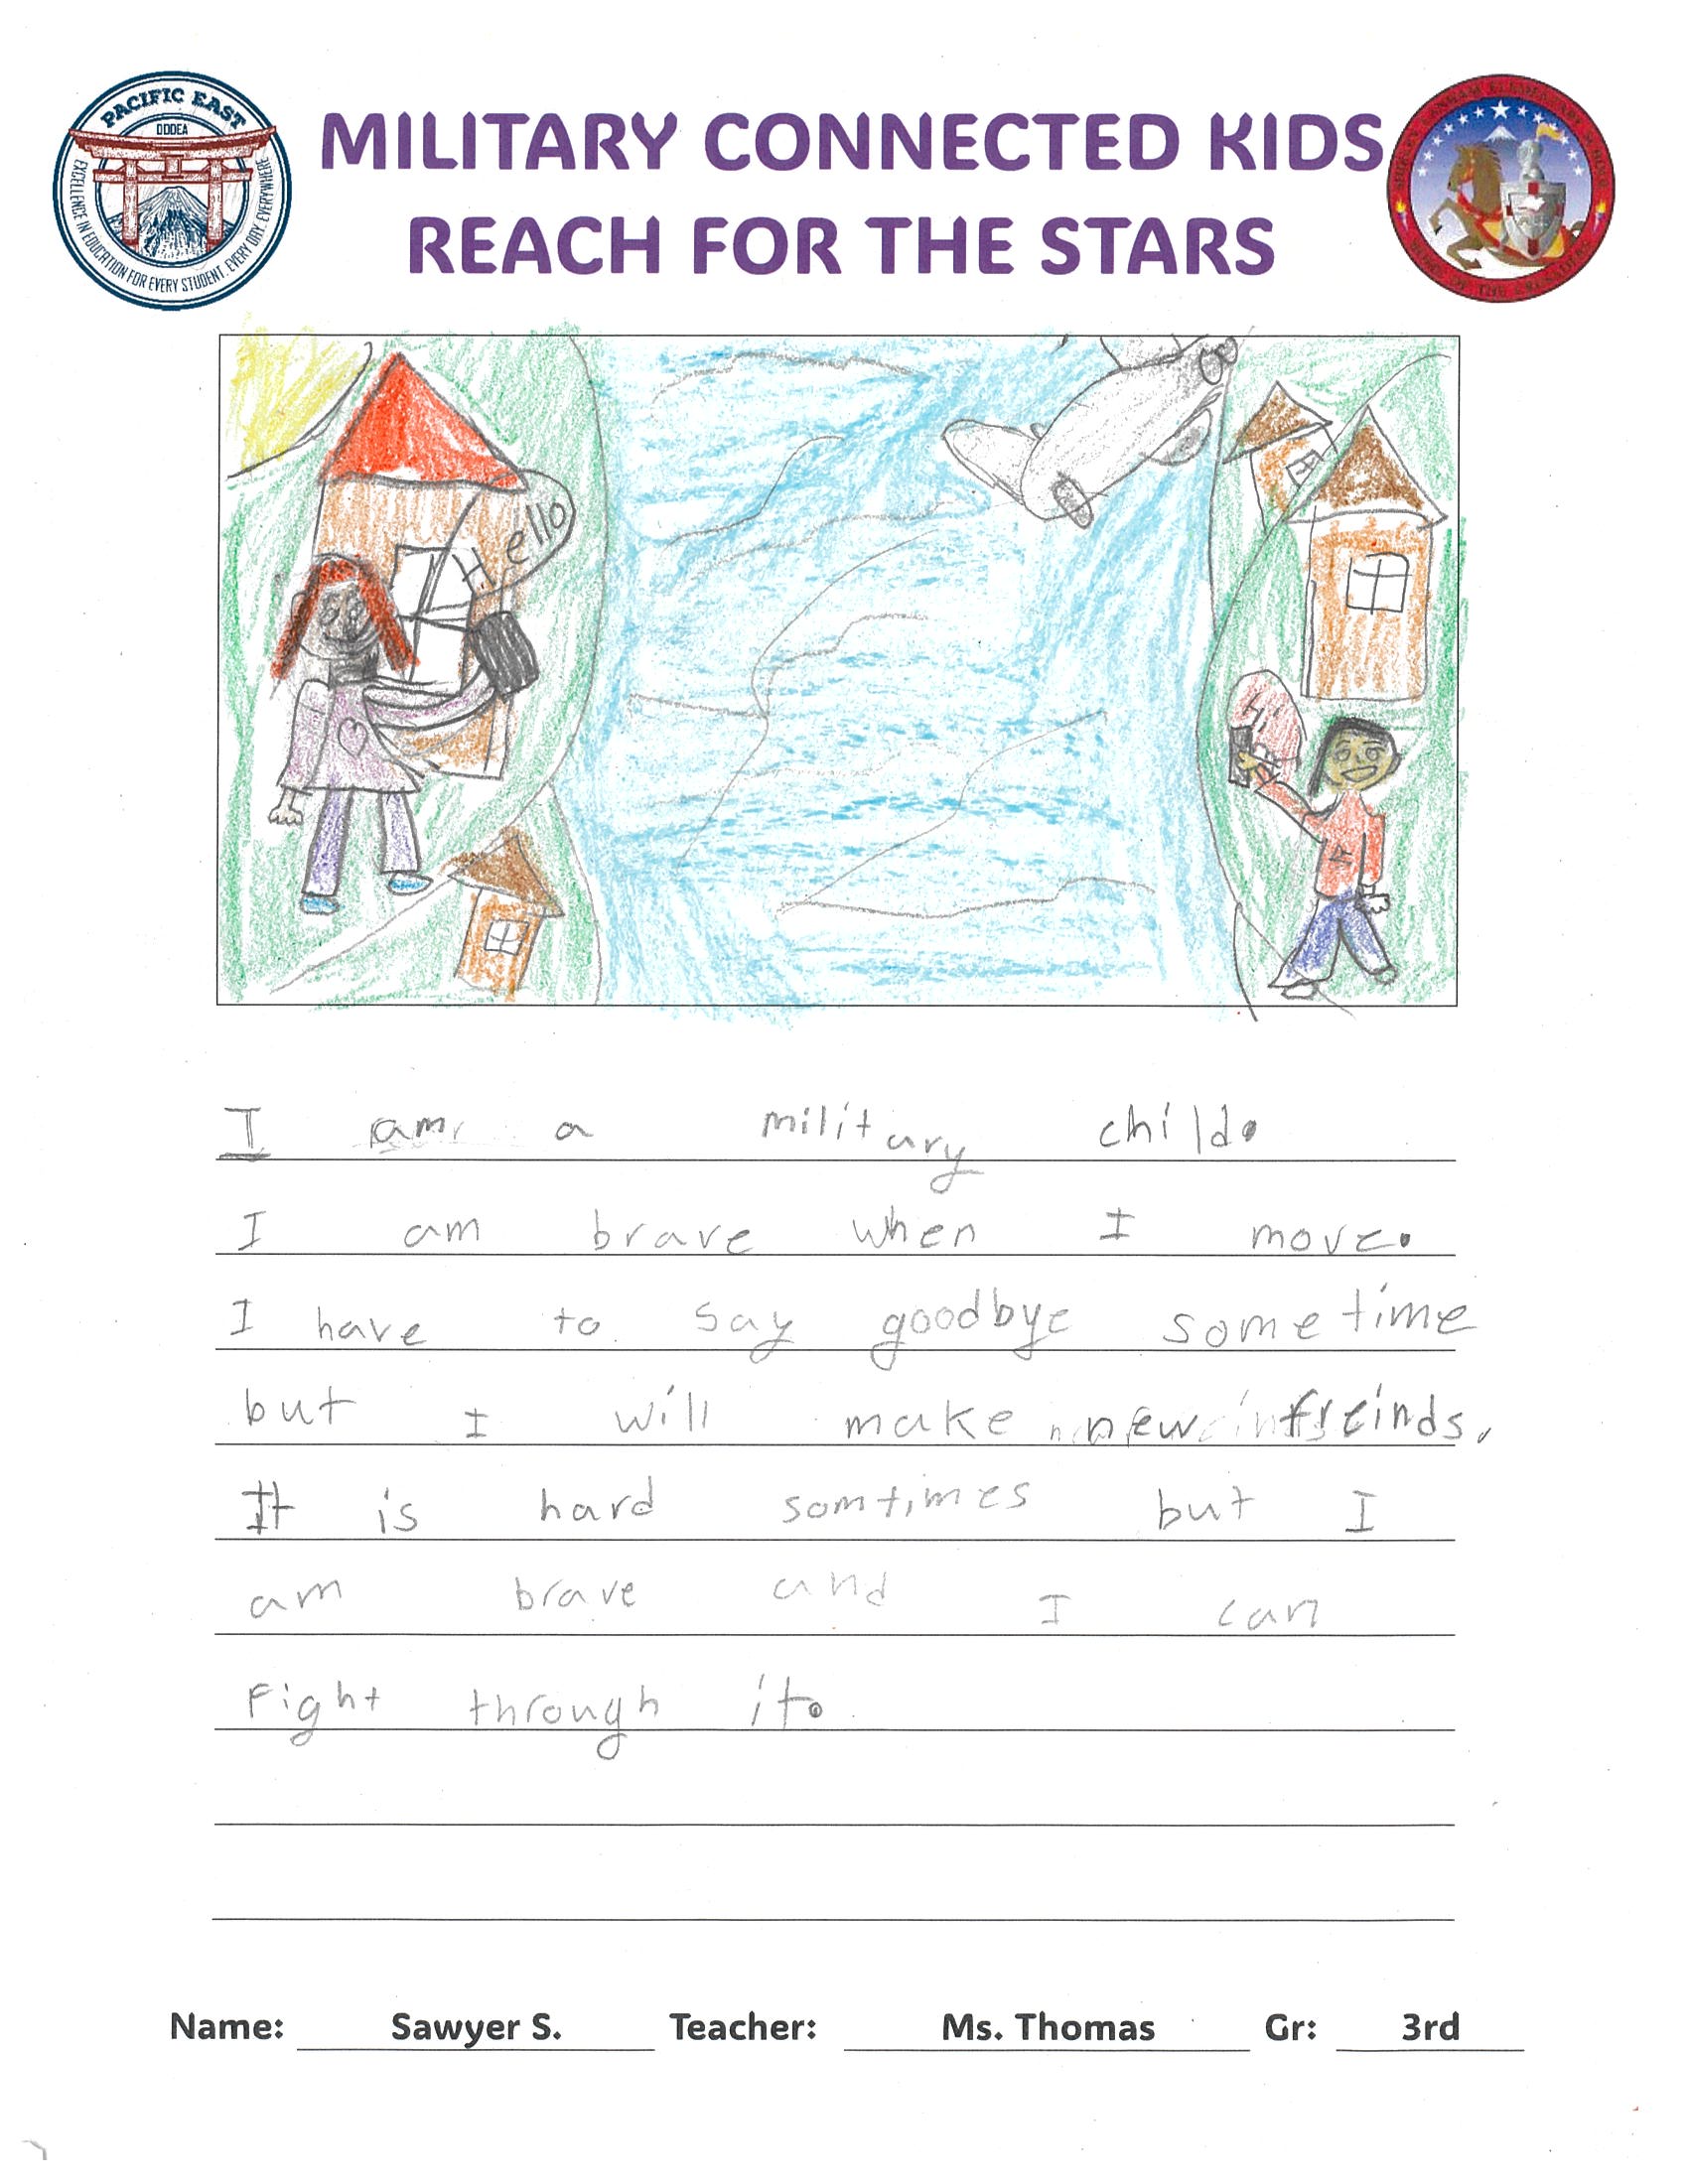 PACIFIC EAST
DODEA
EXCELLENCE IN EDUCATION FOR EVERY STUDENT, EVERY DAY, EVERYWHERE
MILITARY CONNECTED KIDS
REACH FOR THE STARS
ELEMENTARY SCHOOL
HOME OF THE CRUSADERS
Hello
Hi
I am a military child.
I am brave when I move.
I have to say goodbye sometime
but I will make new freinds,
It is hard somtimes but I
am brave and I can
Fight through it.
Name: Sawyer S. Teacher: Ms. Thomas Gr: 3rd